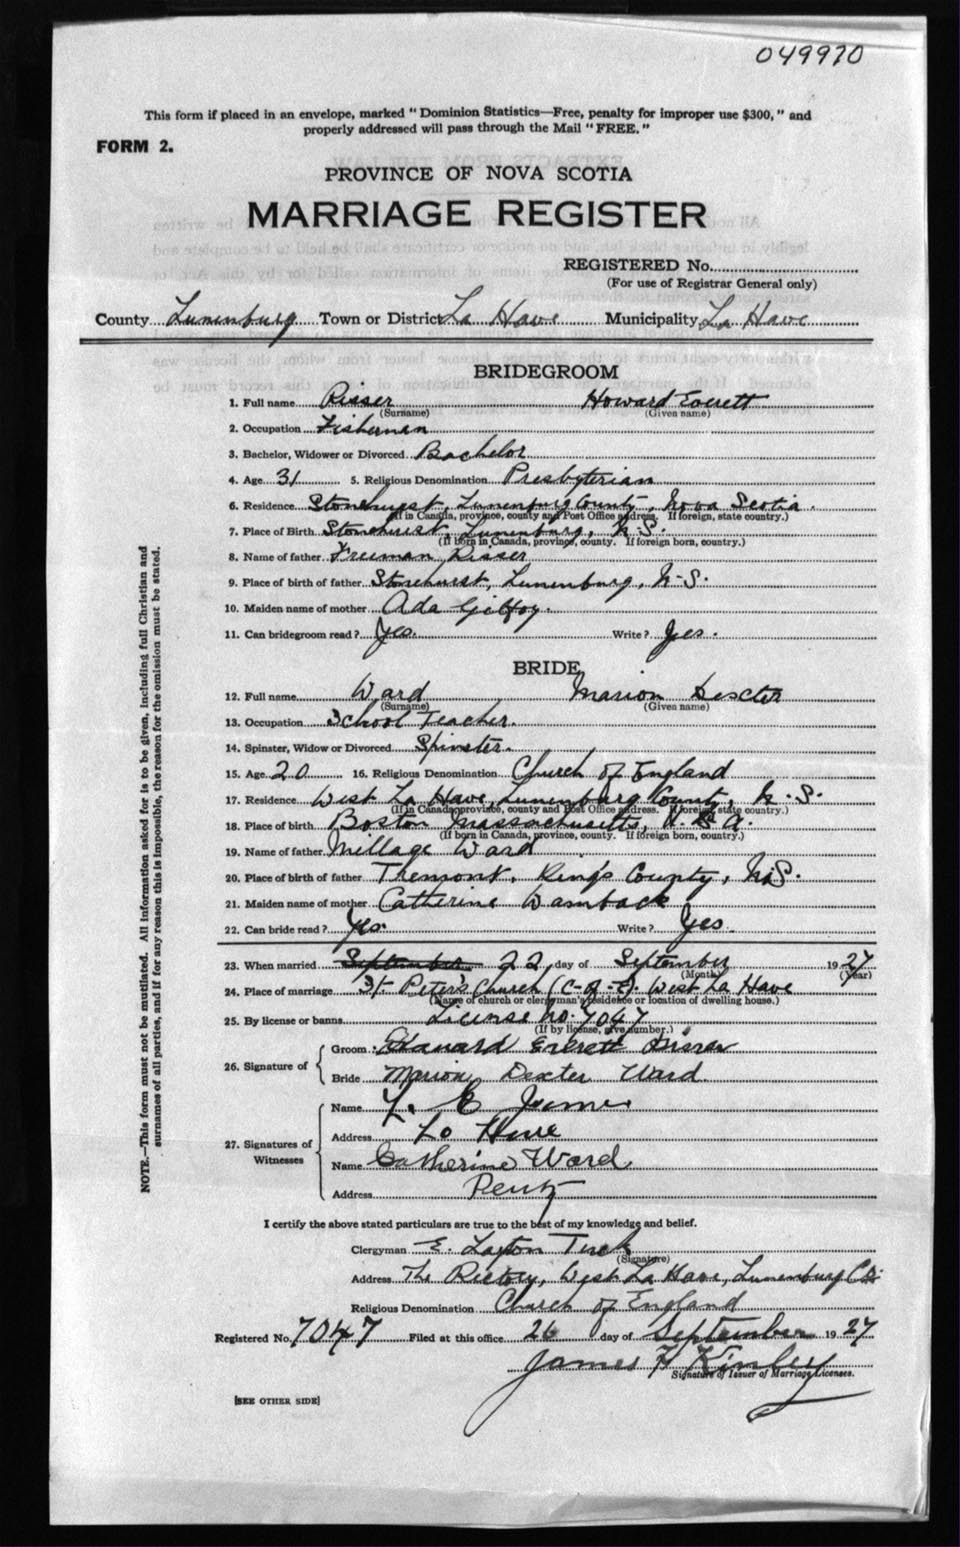 049970
This form if placed in an envelope, marked "Dominion Statistics—Free, penalty for improper use $300," and
properly addressed will pass through the Mail "FREE."
FORM 2.
PROVINCE OF NOVA SCOTIA
MARRIAGE REGISTER
REGISTERED No.
(For use of Registrar General only)
County Lunenburg Town or District La Have Municipality La Have
BRIDEGROOM
1. Full name Risser Howard Everett
(Surname) (Given name)
2. Occupation Fisherman
3. Bachelor, Widower or Divorced Bachelor
4. Age 31 5. Religious Denomination Presbyterian
6. Residence Stonehurst, Lunenburg County, Nova Scotia.
(If in Canada, province, county and Post Office address. If foreign, state country.)
7. Place of Birth Stonehurst, Lunenburg, N.S.
(If born in Canada, province, county. If foreign born, country.)
8. Name of father Freeman Risser
9. Place of birth of father Stonehurst, Lunenburg, N-S.
10. Maiden name of mother Ada Gilfoy.
11. Can bridegroom read? Yes. Write? Yes.
BRIDE
12. Full name Ward Marion Dexter
(Surname) (Given name)
13. Occupation School Teacher.
14. Spinster, Widow or Divorced Spinster.
15. Age 20 16. Religious Denomination Church of England
17. Residence West La Have, Lunenburg County, N.S.
(If in Canada, province, county and Post Office address. If foreign, state country.)
18. Place of birth Boston Massachusetts, U.S.A.
(If born in Canada, province, county. If foreign born, country.)
19. Name of father Millage Ward
20. Place of birth of father Themont, King's County, N.S.
21. Maiden name of mother Catherine Wamback
22. Can bride read? Yes. Write? Yes.
23. When married September 22, day of September 1927
(Month) (Year)
24. Place of marriage St Peter's Church (C-of-E). West La Have
(Name of church or clergyman's residence or location of dwelling house.)
25. By license or banns License No. 7047
(If by license, give number.)
26. Signature of
Groom: Howard Everett Risser
Bride Marion Dexter Ward.
27. Signatures of
Witnesses
Name L. E James
Address La Have
Name Catherine Ward
Address Pentz
I certify the above stated particulars are true to the best of my knowledge and belief.
Clergyman E. Layton Tuck
(Signature)
Address The Rectory, West La Have, Lunenburg Co.
Religious Denomination Church of England
Registered No. 7047 Filed at this office 26 day of September 1927
James H Kinley
Signature of Issuer of Marriage Licenses.
[SEE OTHER SIDE]
NOTE.—This form must not be mutilated. All information asked for is to be given, including full Christian and
surnames of all parties, and if for any reason this is impossible, the reason for the omission must be stated.